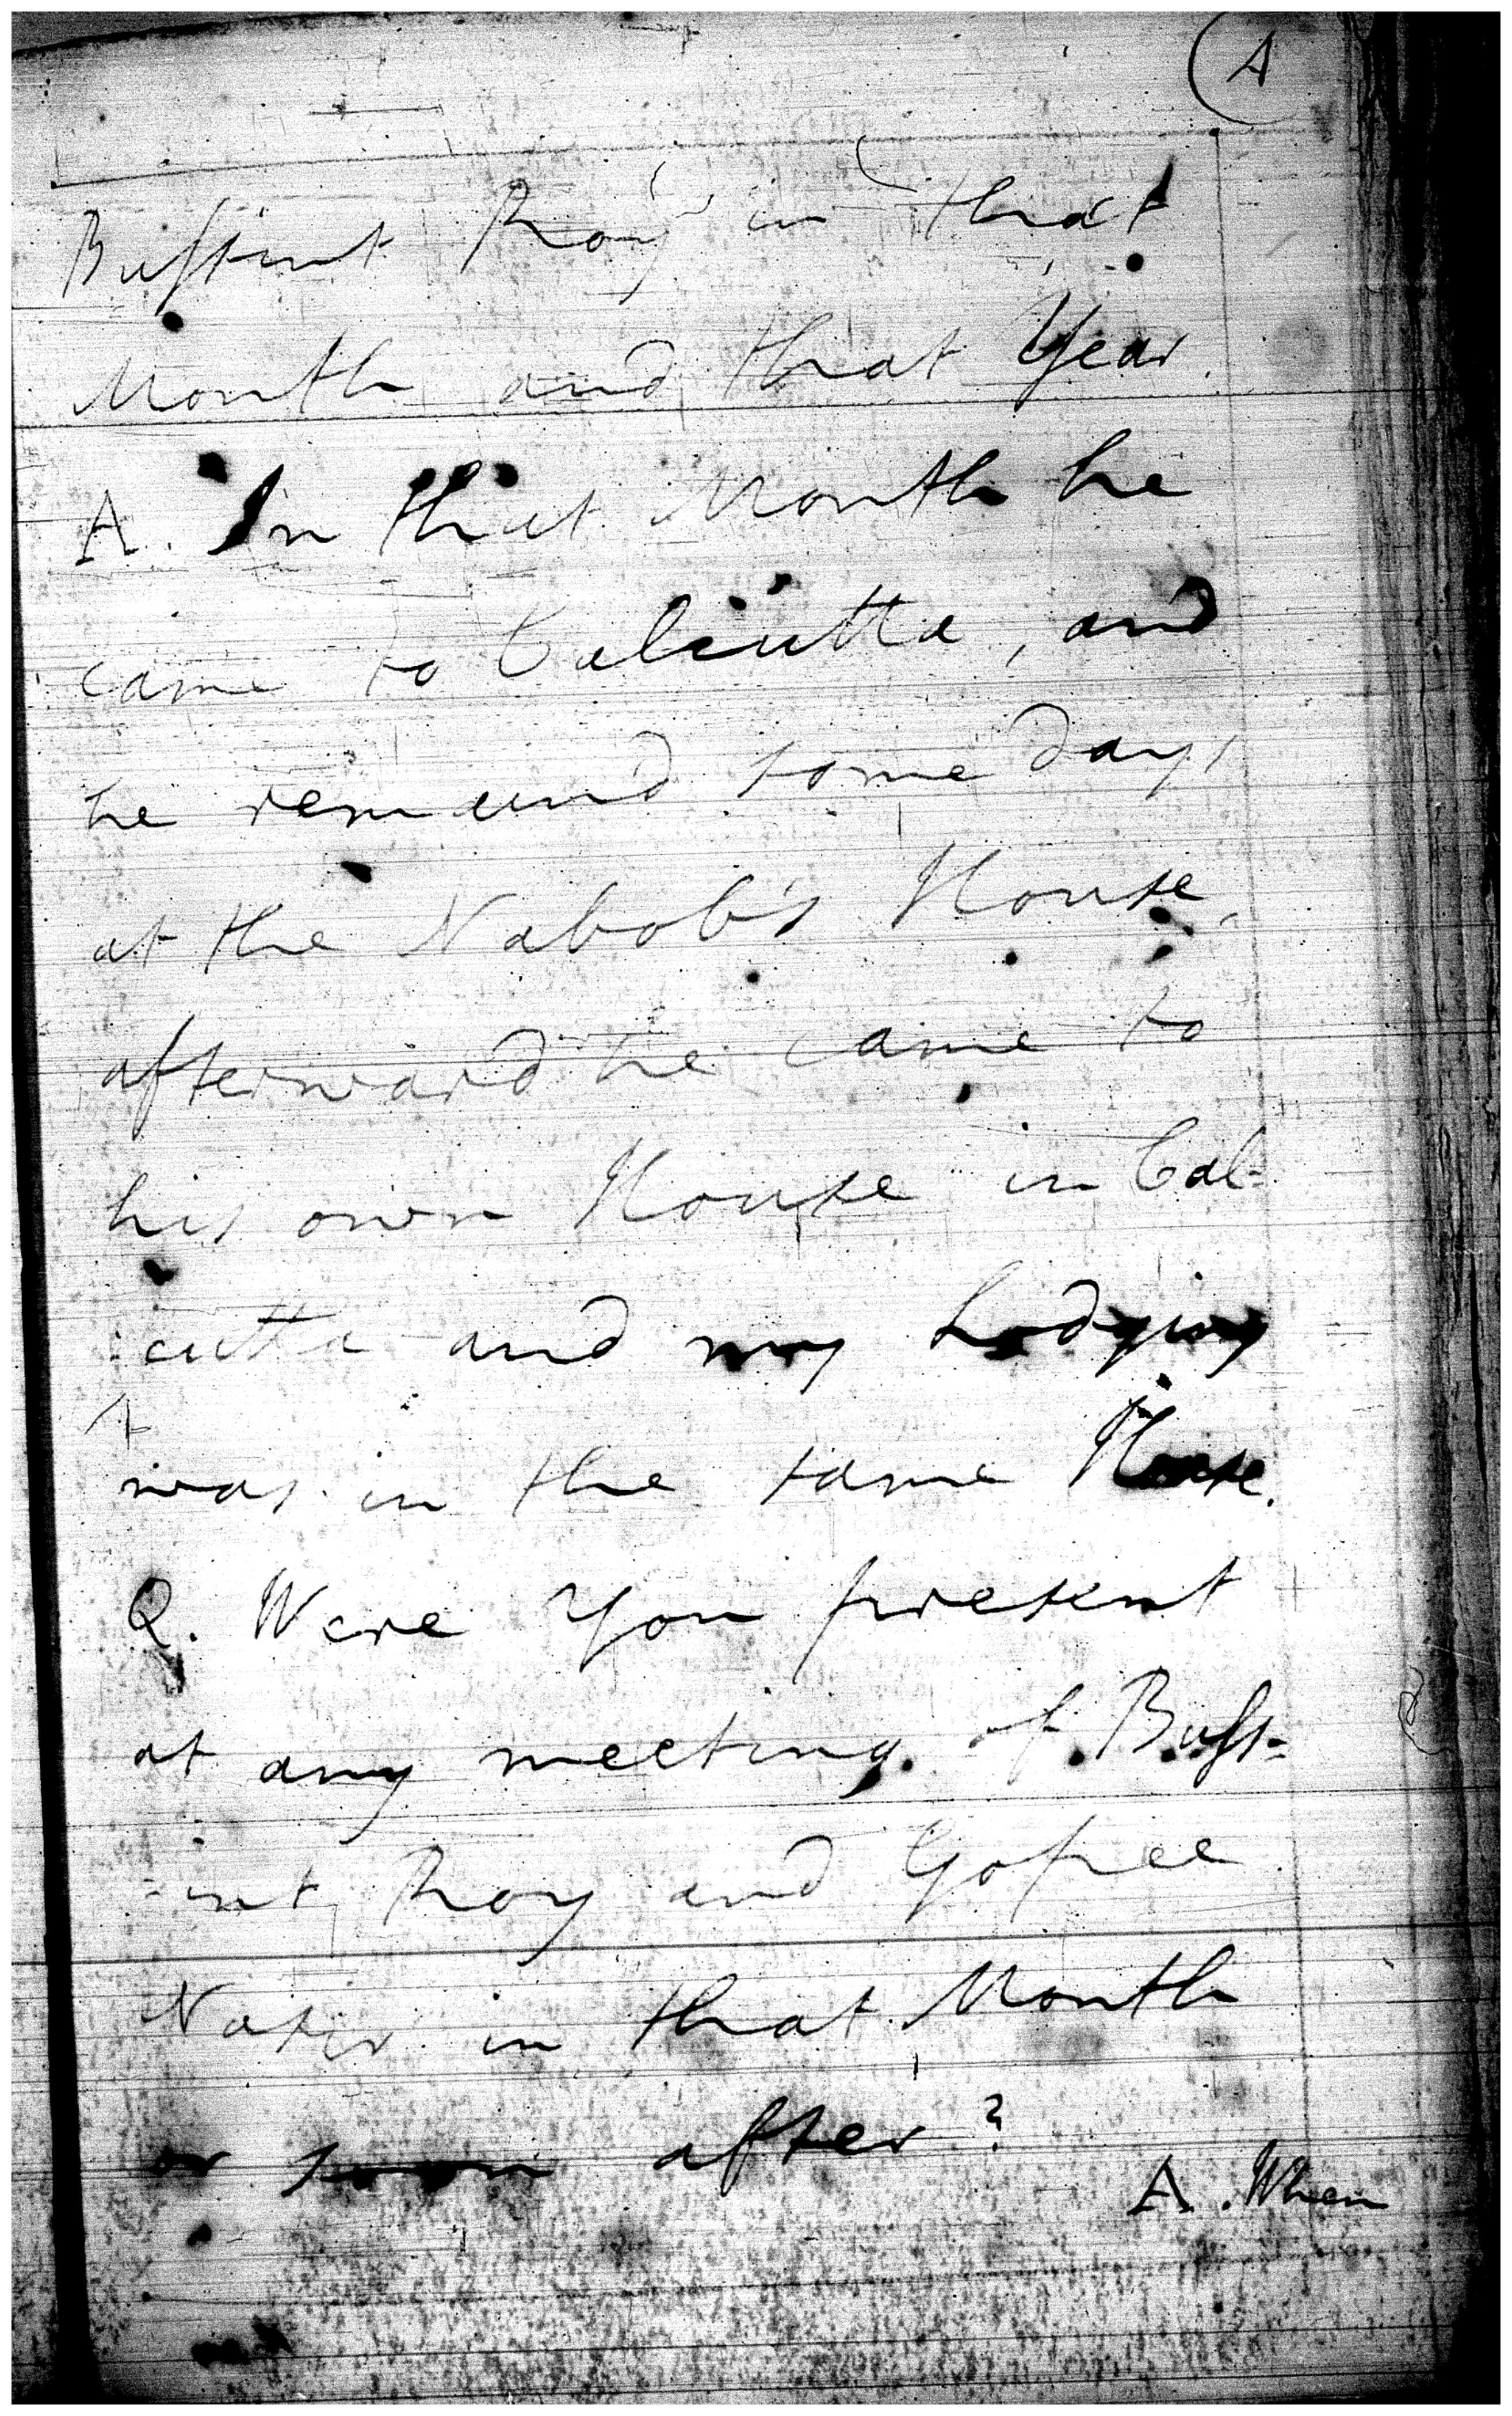 A
Bussunt Roy in that
Month and that Year.
A. In that Month he
came to Calcutta, and
he remaind some days
at the Nabob's House,
afterward he came to
his own House in Cal-
:cutta and my Lodging
was in the same House.
Q. Were You present
at any meeting of Buss-
-unt Roy and Gopee
Nazir in that Month
or soon after?
A. When